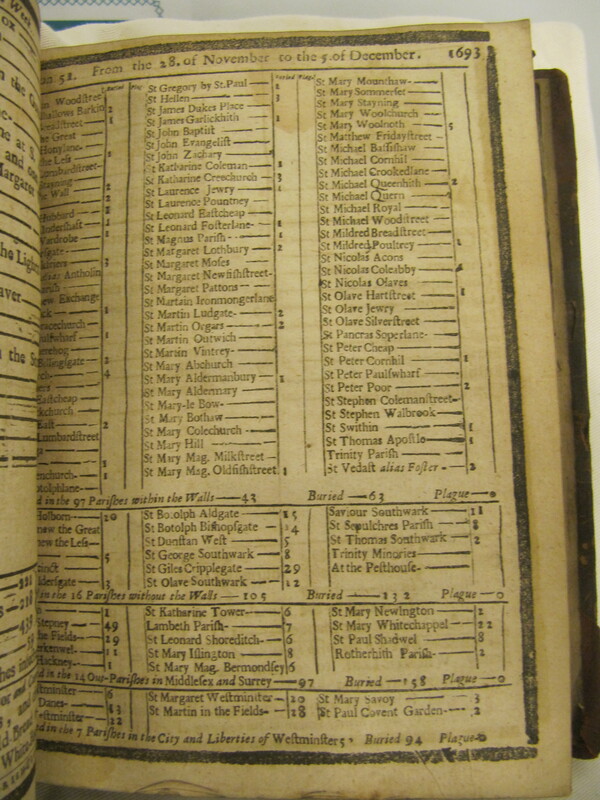 51. From the 28. of November to the 5. of December. 1693
Woodstreet
Barkin
Breadstreet
Great
Honylane
Less
Lumbardstreet
Staynning
Wall
Hubbard 2
Undershaft 1
Wardrobe 1
Antholin
New Exchange
Gracechurch 1
Paulswharf 1
Billingsgate 2
Eastcheap
Lumbardstreet
St Gregory by St. Paul 1
St Hellen 3
St James Dukes Place
St James Garlickhith 1
St John Baptist
St John Evangelist
St John Zachary
St Katharine Coleman 1
St Katharine Creechurch 3
St Laurence Jewry 1
St Laurence Pountney
St Leonard Eastcheap
St Leonard Fosterlane 1
St Magnus Parish 1
St Margaret Lothbury 2
St Margaret Moses
St Margaret Newfishstreet
St Margaret Pattons
St Martain Ironmongerlane
St Martin Ludgate 2
St Martin Orgars 2
St Martin Outwich
St Martin Vintrey
St Mary Abchurch
St Mary Aldermanbury 1
St Mary Aldermary
St Mary-le Bow
St Mary Bothaw
St Mary Colechurch
St Mary Hill
St Mary Mag. Milkstreet
St Mary Mag. Oldfishstreet 1
St Mary Mounthaw
St Mary Sommerset
St Mary Stayning
St Mary Woolchurch
St Mary Woolnoth 5
St Matthew Fridaystreet
St Michael Bassishaw
St Michael Cornhil
St Michael Crookedlane
St Michael Queenhith 2
St Michael Quern
St Michael Royal
St Michael Woodstreet
St Mildred Breadstreet
St Mildred Poultrey 1
St Nicolas Acons
St Nicolas Coleabby
St Nicolas Olaves
St Olave Hartstreet 1
St Olave Jewry
St Olave Silverstreet
St Pancras Soperlane
St Peter Cheap
St Peter Cornhil 1
St Peter Paulswharf
St Peter Poor 2
St Stephen Colemanstreet
St Stephen Walbrook
St Swithin 1
St Thomas Apostle 1
Trinity Parish
St Vedast alias Foster 2
in the 97 Parishes within the Walls 43 Buried 63 Plague 0
Holborn 20
the Great
the Less
5
3
St Botolph Aldgate 15
St Botolph Bishopsgate 14
St Dunstan West 5
St George Southwark 8
St Giles Cripplegate 29
St Olave Southwark 12
Saviour Southwark 11
St Sepulchres Parish 8
St Thomas Southwark 2
Trinity Minories
At the Pesthouse
in the 16 Parishes without the Walls 105 Buried 132 Plague 0
1
Stepney 49
the Fields 19
11
Hackney 1
St Katharine Tower 6
Lambeth Parish 7
St Leonard Shoreditch 6
St Mary Islington 8
St Mary Mag. Bermondsey 6
St Mary Newington 2
St Mary Whitechappel 22
St Paul Shadwel 8
Rotherhith Parish 2
in the 14 Out-Parishes in Middlesex and Surrey 97 Buried 158 Plague 0
Westminster 6
Danes 13
Westminster 12
St Margaret Westminster 20
St Martin in the Fields 28
St Mary Savoy 3
St Paul Covent Garden 2
in the 7 Parishes in the City and Liberties of Westminster Buried 94 Plague 0